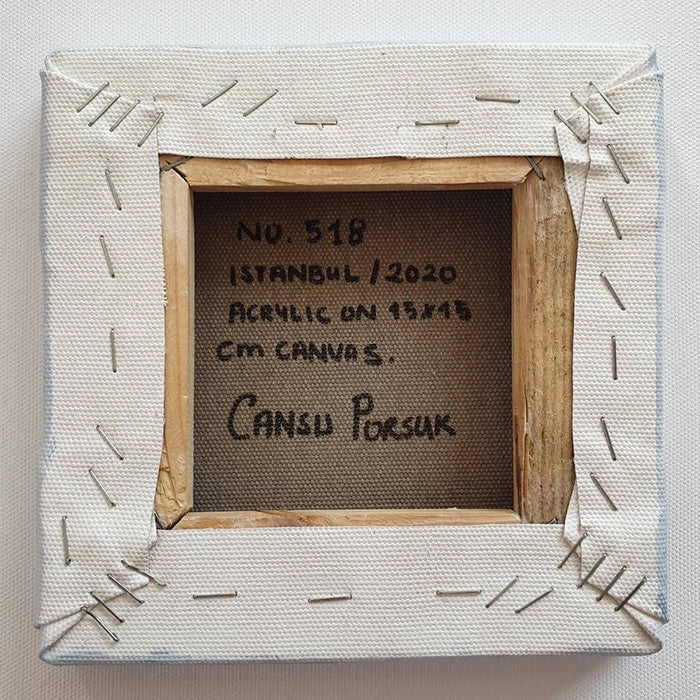 NO. 518
ISTANBUL / 2020
ACRYLIC ON 15x15
cm CANVAS.
CANSU PORSUK